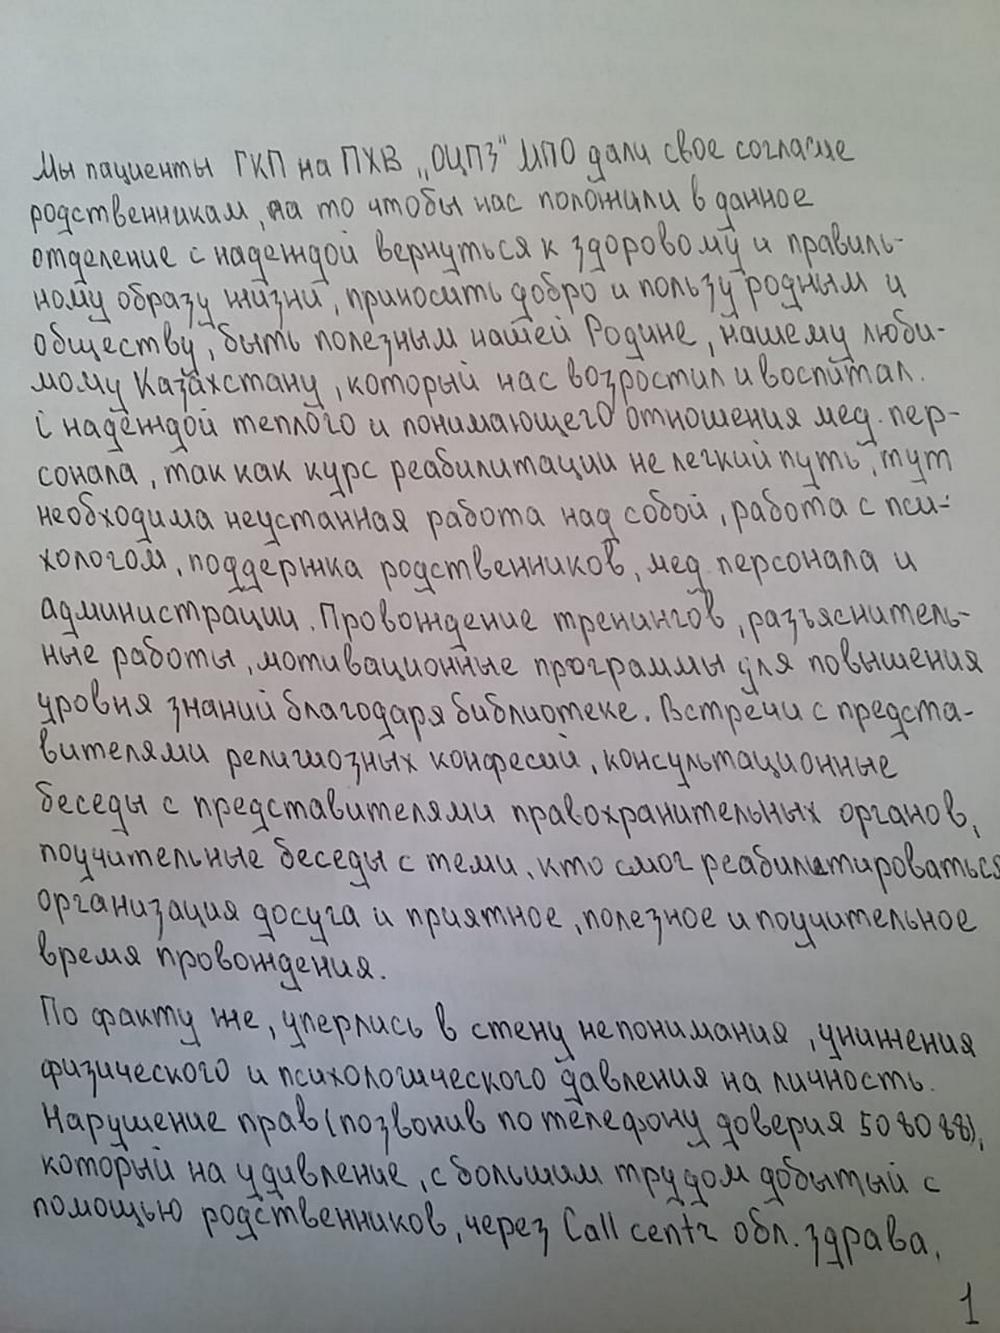 Мы пациенты ГКП на ПХВ „ОЦПЗ" МПО дали свое согласие
родственникам, на то чтобы нас положили в данное
отделение с надеждой вернуться к здоровому и правиль-
ному образу жизни, приносить добро и пользу родным и
обществу, быть полезным нашей Родине, нашему люби-
мому Казахстану, который нас возростил и воспитал.
С надеждой теплого и понимающего отношения мед. пер-
сонала, так как курс реабилитации не легкий путь, тут
необходима неустанная работа над собой, работа с пси-
хологом, поддержка родственников, мед персонала и
администрации. Провождение тренингов, разъяснитель-
ные работы, мотивационные программы для повышения
уровня знаний благодаря библиотеке. Встречи с предста-
вителями религиозных конфесий, консультационные
беседы с представителями правохранительных органов,
поучительные беседы с теми, кто смог реабилитироваться
организация досуга и приятное, полезное и поучительное
время провождения.
По факту же, уперлись в стену непонимания, унижения
физического и психологического давления на личность.
Нарушение прав (позвонив по телефону доверия 508088),
который на удивление, с большим трудом добытый с
помощью родственников, через Call centr обл. здрава,
1